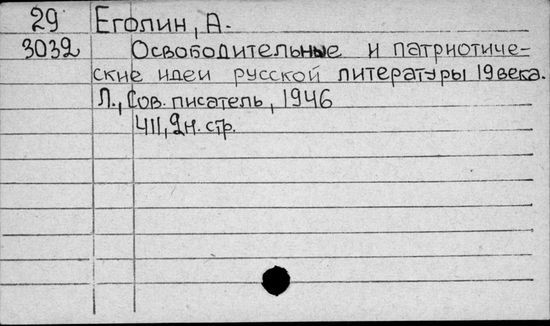 29 Еголин, А.
3032 Освободительные и патриотиче-
ские идеи русской литературы 19 века.
Л., Сов. писатель, 1946
411, 2н. стр.